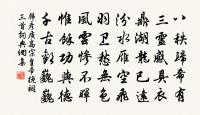 八秩歸帝有
三靈感具衣
鼎湖龍已遠
汾水雁空飛
羽衛悲無色
風雲慘不暉
惟餘功與德
千古鎮巍巍
韓彥質高宗皇帝挽詞
三首詞典網集